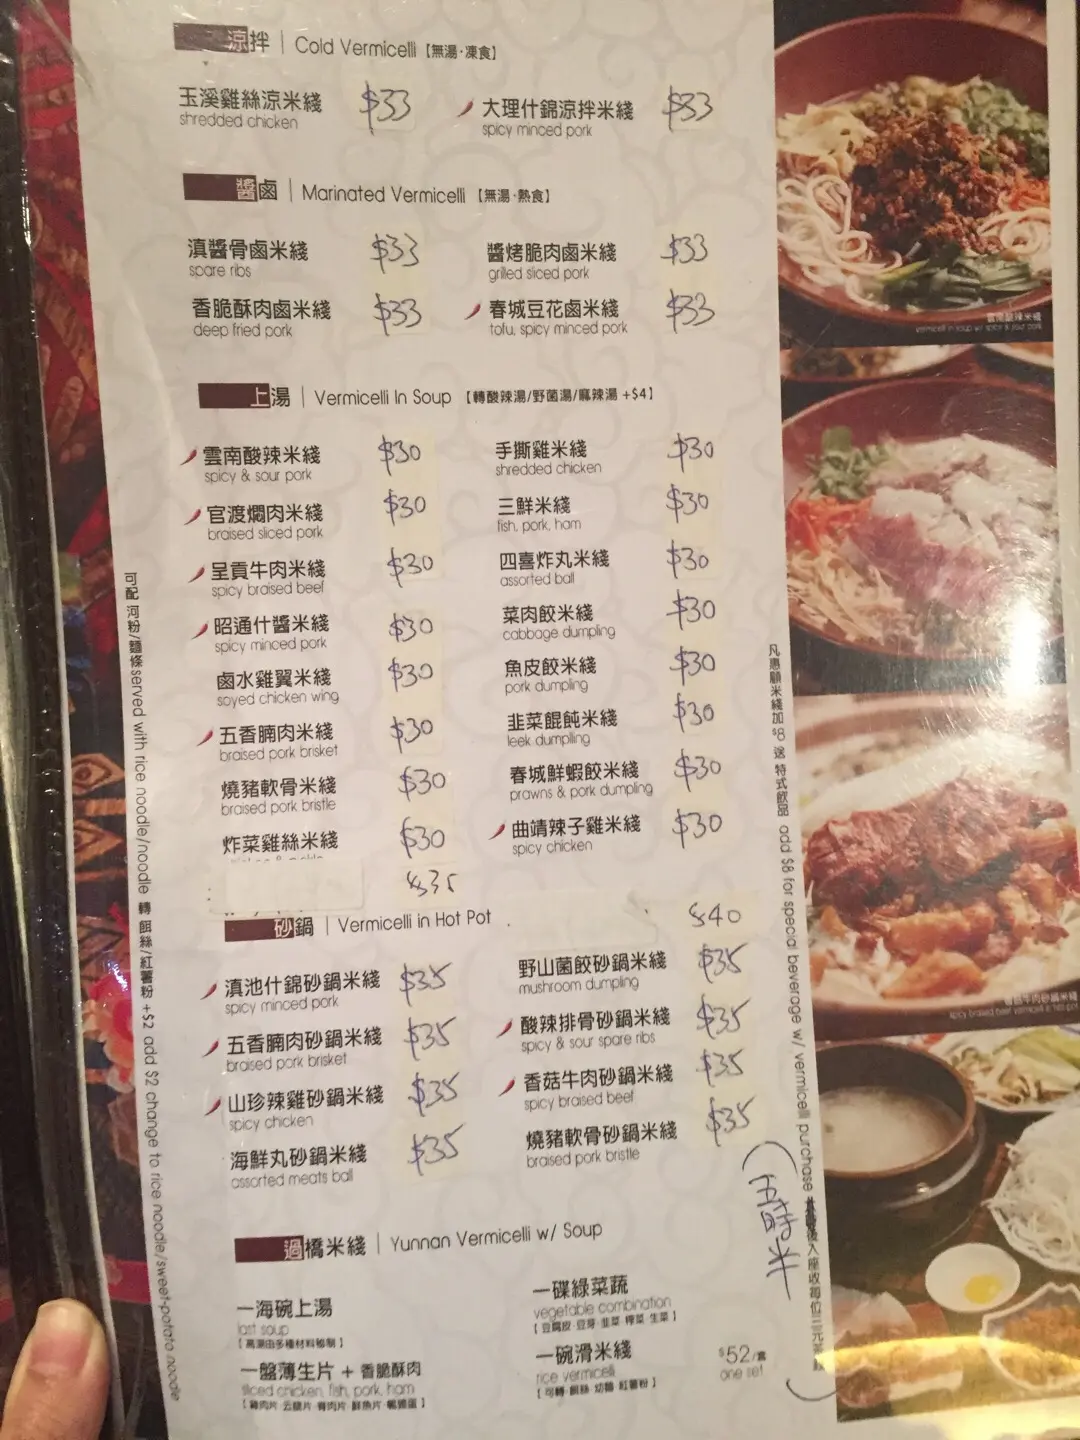 涼拌 | Cold Vermicelli 【無湯·凍食】
玉溪雞絲涼米綫 $33
shredded chicken
大理什錦涼拌米綫 $33
spicy minced pork
醬鹵 | Marinated Vermicelli 【無湯·熱食】
滇醬骨鹵米綫 $33
spare ribs
醬烤脆肉鹵米綫 $33
grilled sliced pork
香脆酥肉鹵米綫 $33
deep fried pork
春城豆花鹵米綫 $33
tofu, spicy minced pork
上湯 | Vermicelli In Soup 【轉酸辣湯/野菌湯/麻辣湯 +$4】
雲南酸辣米綫 $30
spicy & sour pork
官渡燜肉米綫 $30
braised sliced pork
呈貢牛肉米綫 $30
spicy braised beef
昭通什醬米綫 $30
spicy minced pork
鹵水雞翼米綫 $30
soyed chicken wing
五香腩肉米綫 $30
braised pork brisket
燒豬軟骨米綫 $30
braised pork bristle
炸菜雞絲米綫 $30
$35
手撕雞米綫 $30
shredded chicken
三鮮米綫 $30
fish, pork, ham
四喜炸丸米綫 $30
assorted ball
菜肉餃米綫 $30
cabbage dumpling
魚皮餃米綫 $30
pork dumpling
韭菜餛飩米綫 $30
leek dumplling
春城鮮蝦餃米綫 $30
prawns & pork dumpling
曲靖辣子雞米綫 $30
spicy chicken
砂鍋 | Vermicelli in Hot Pot
$40
滇池什錦砂鍋米綫 $35
spicy minced pork
五香腩肉砂鍋米綫 $35
braised pork brisket
山珍辣雞砂鍋米綫 $35
spicy chicken
海鮮丸砂鍋米綫 $35
assorted meats ball
野山菌餃砂鍋米綫 $35
mushroom dumpling
酸辣排骨砂鍋米綫 $35
spicy & sour spare ribs
香菇牛肉砂鍋米綫 $35
spicy braised beef
燒豬軟骨砂鍋米綫 $35
braised pork bristle
過橋米綫 | Yunnan Vermicelli w/ Soup
一海碗上湯
last soup
一盤薄生片 + 香脆酥肉
sliced chicken, fish, pork, ham
一碟綠菜蔬
vegetable combination
一碗滑米綫
rice vermicelli
$52/套
one set
可配 河粉/麵條 served with rice noodle/noodle 轉 餌絲/紅薯粉 +$2 add $2 change to rice noodle/sweet-potato noodle
凡惠顧米綫加 $8 送 特式飲品 add $8 for special beverage w/ vermicelli purchase
後入座收每位三元茶
五時半
雲南酸辣米綫
vermicelli in soup w/ spicy & sour pork
香菇牛肉砂鍋米綫
spicy braised beef vermicelli in hot pot